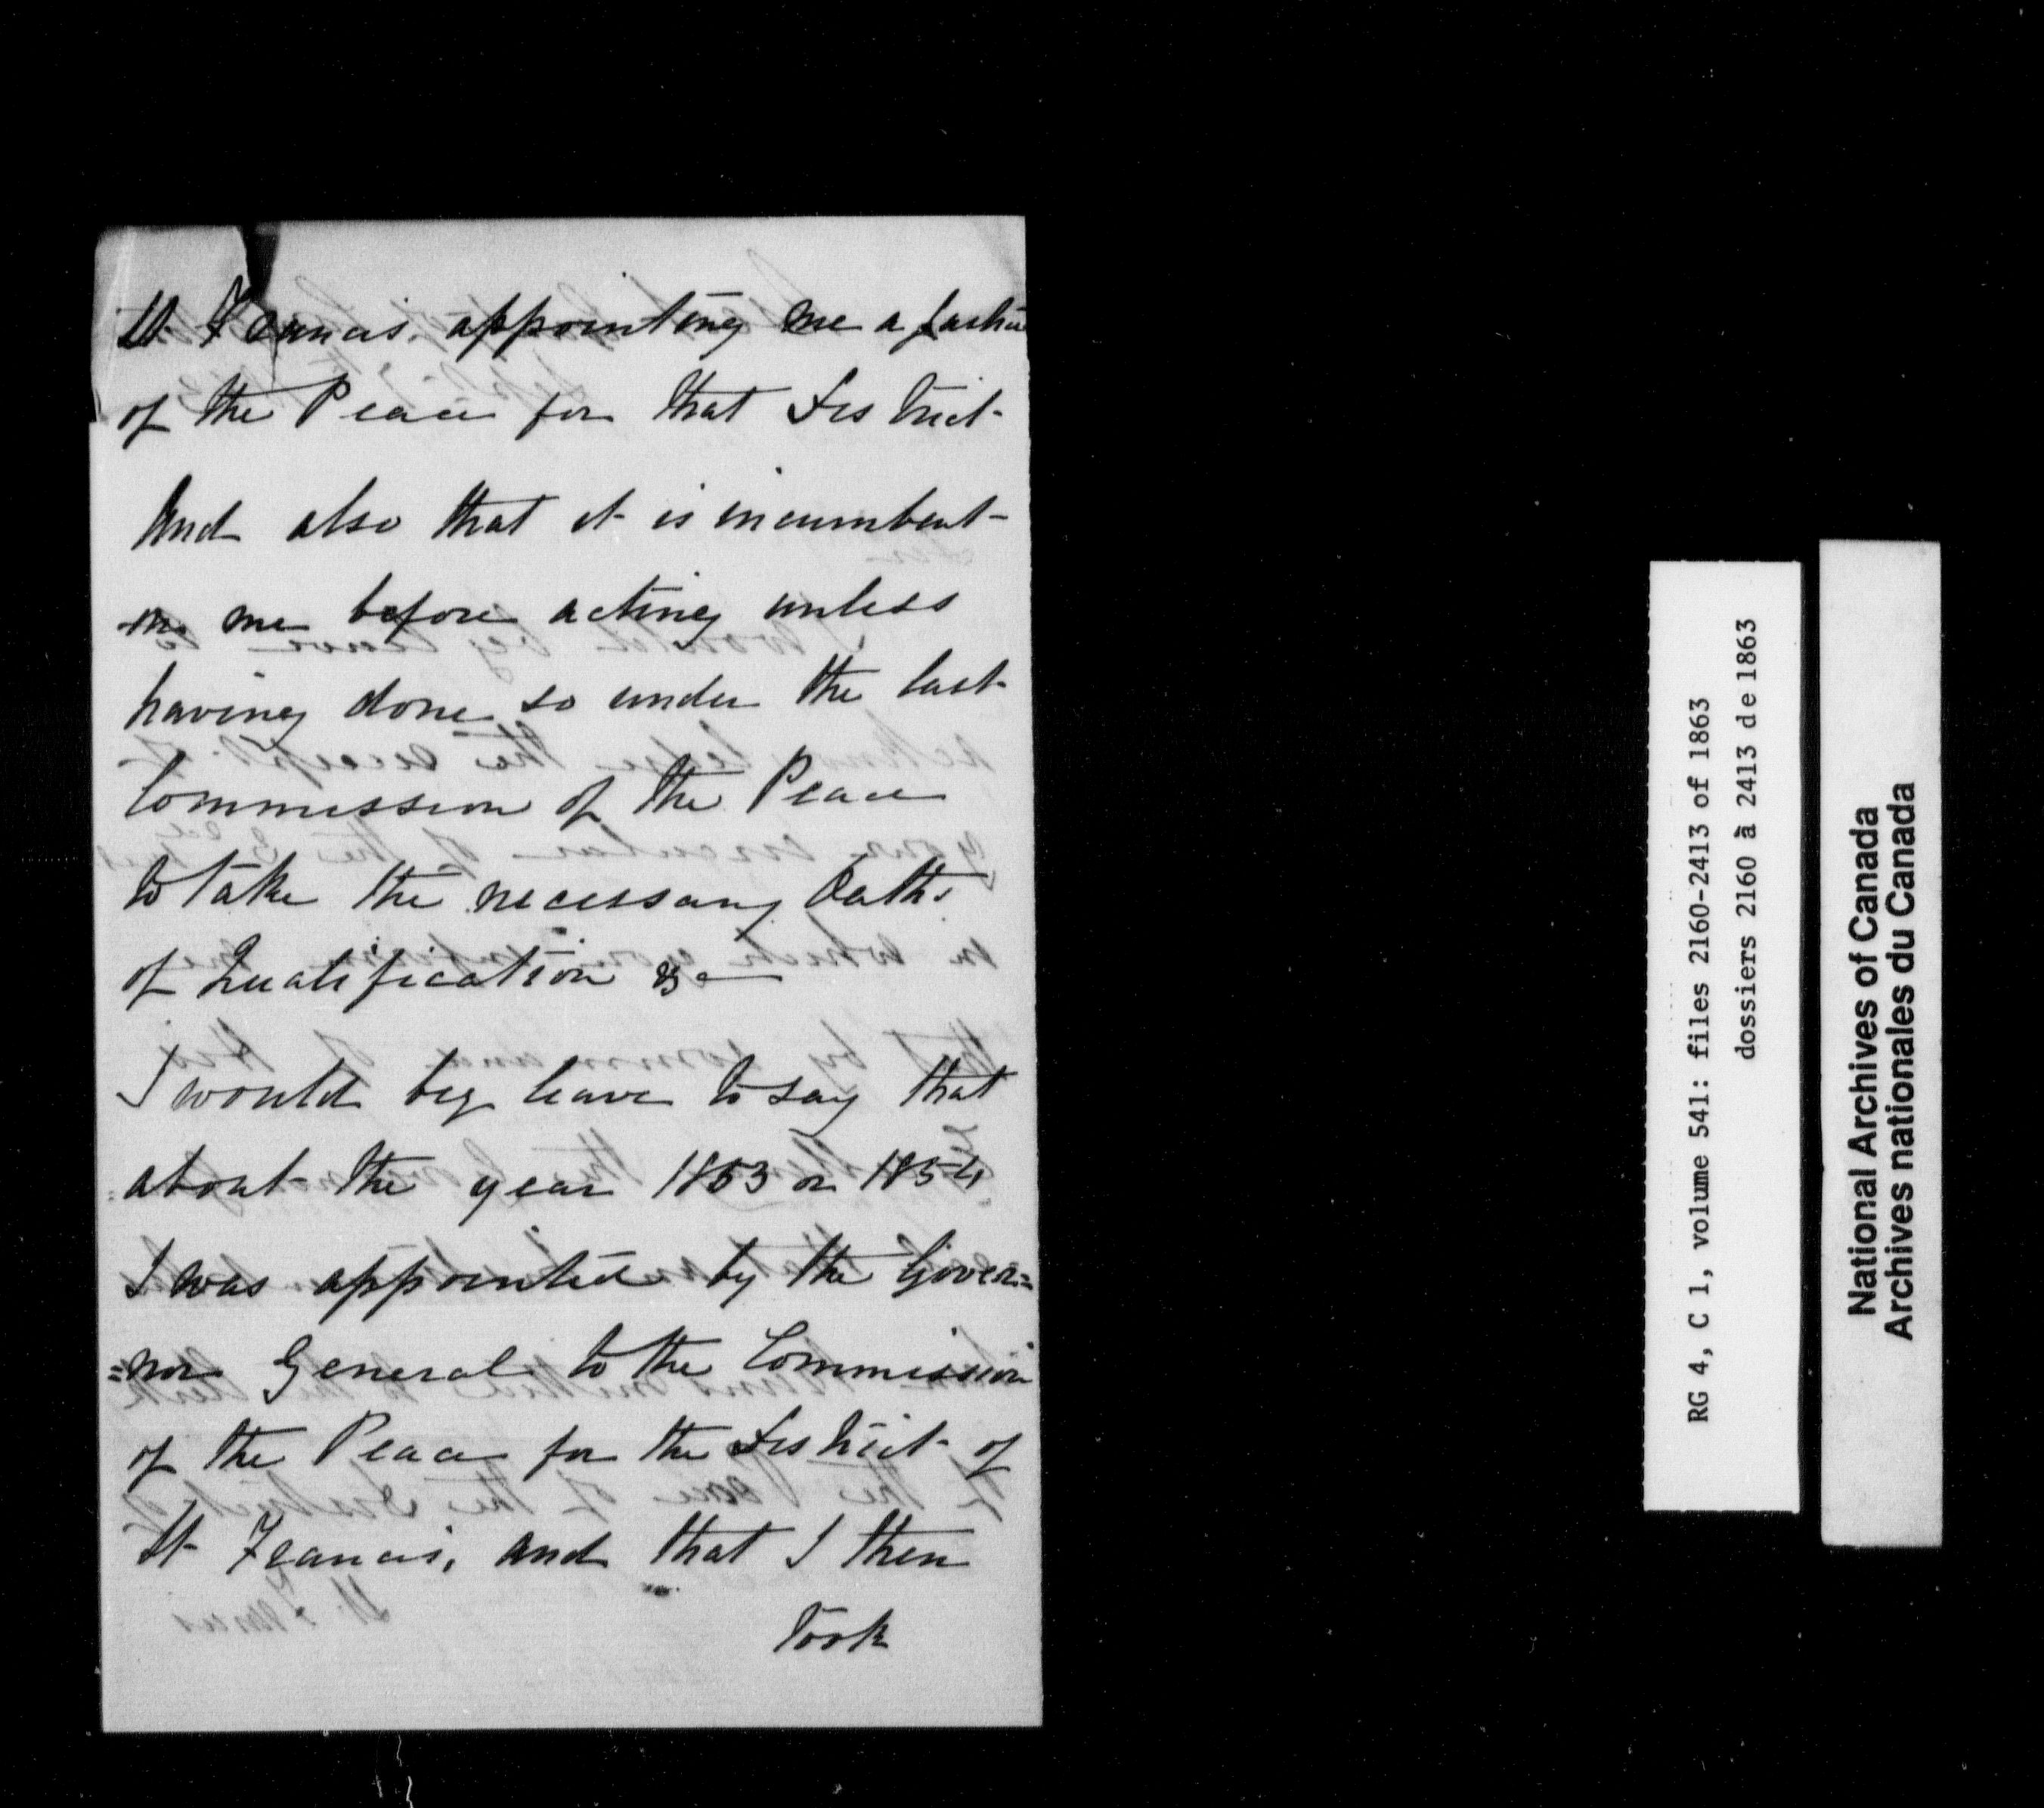 St Francis, appointing me a Justice
of the Peace for that District
And also that it is incumbent
on me before acting unless
having done so under the last
Commission of the Peace
to take the necessary Oaths
of Qualification &c
I would beg leave to say that
about the year 1853 or 1854
I was appointed by the Gover=
=nor General to the Commission
of the Peace for the District of
St Francis, and that I then
took
RG 4, C 1, volume 541: files 2160-2413 of 1863
dossiers 2160 à 2413 de 1863
National Archives of Canada
Archives nationales du Canada